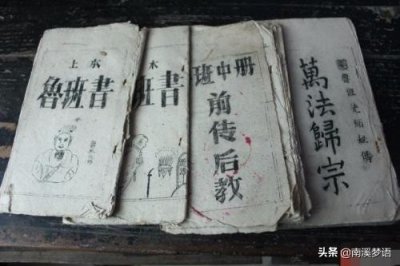 上本
魯班書
班書
班中册
前传后教
萬法歸宗
头条 @南溪梦语